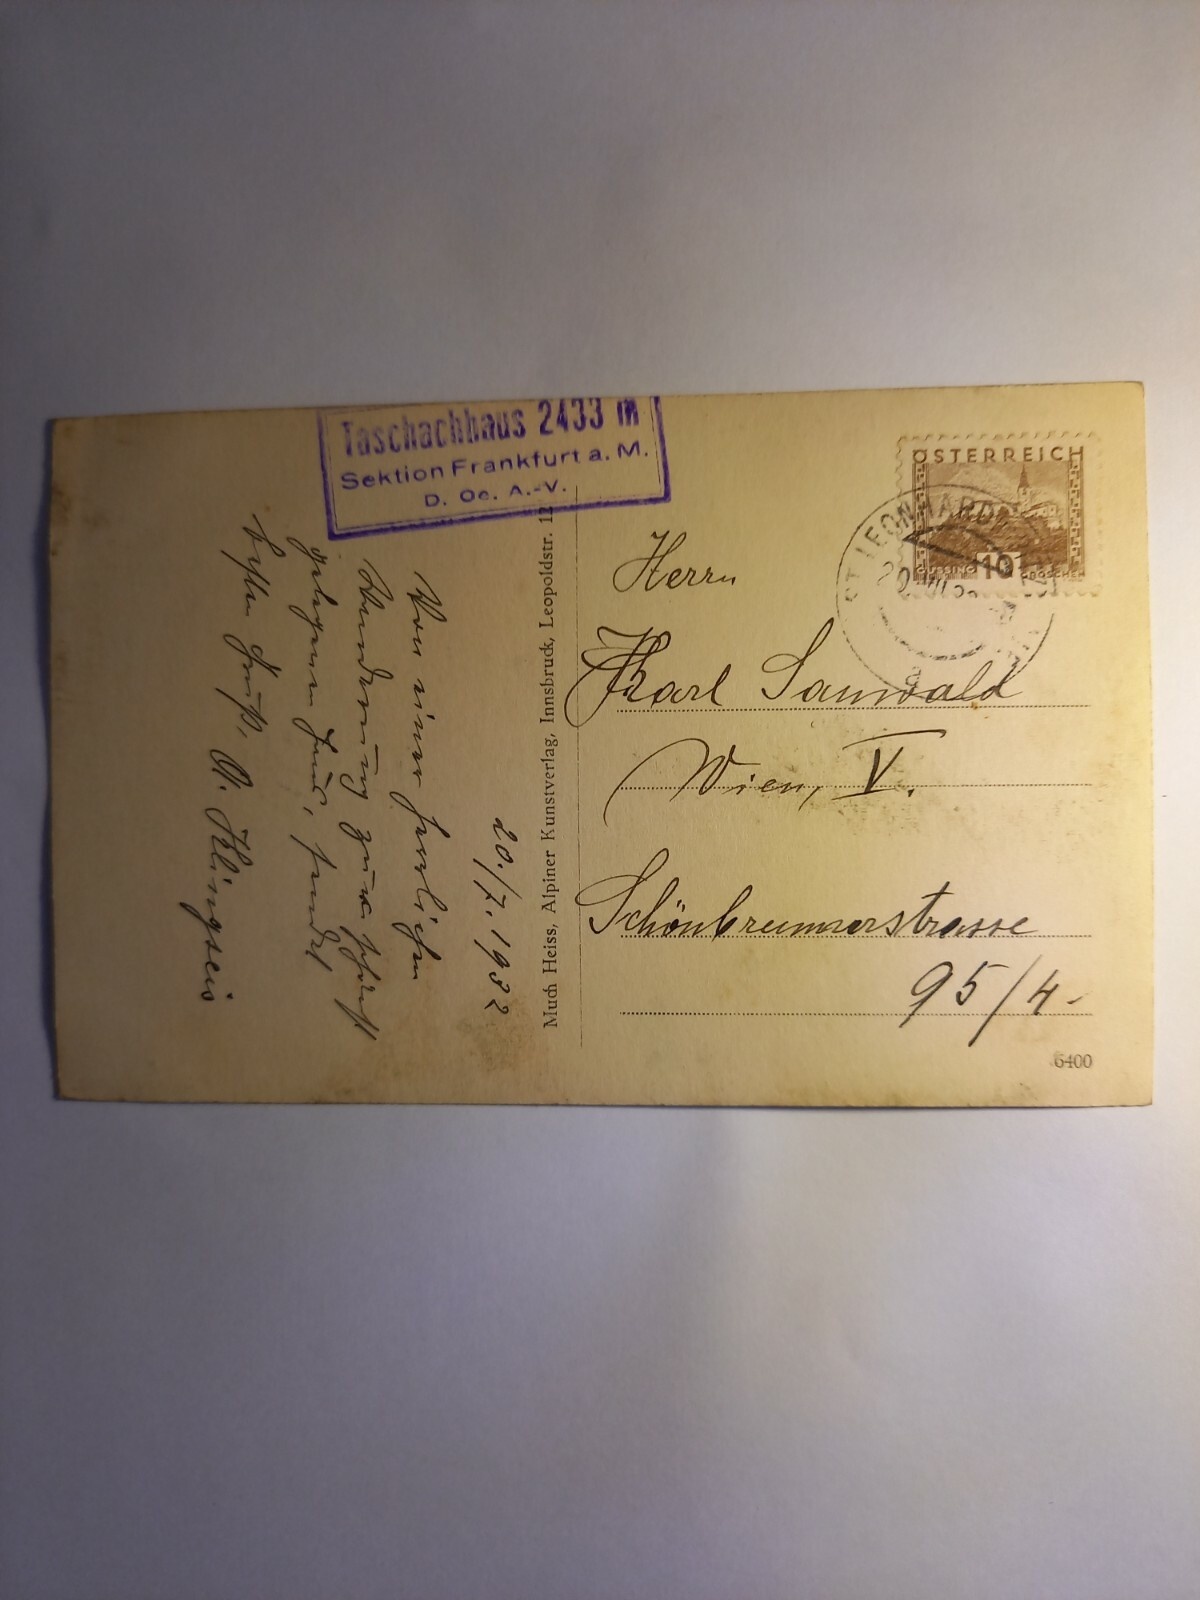 Taschachhaus 2433 m
Sektion Frankfurt a. M.
D. Oe. A.-V.
20./7. 1932
Von einer herrlichen
Wanderung zum schönst
gelegenen Haus, sendet
besten Gruß,
Klingseis
Much Heiss, Alpiner Kunstverlag, Innsbruck, Leopoldstr. 12
ÖSTERREICH
GÜSSING 10 GROSCHEN
ST LEONHARD
20. VII. 32
Herrn
Karl Sanwald
Wien, V.
Schönbrunnerstrasse
95/4-
6400